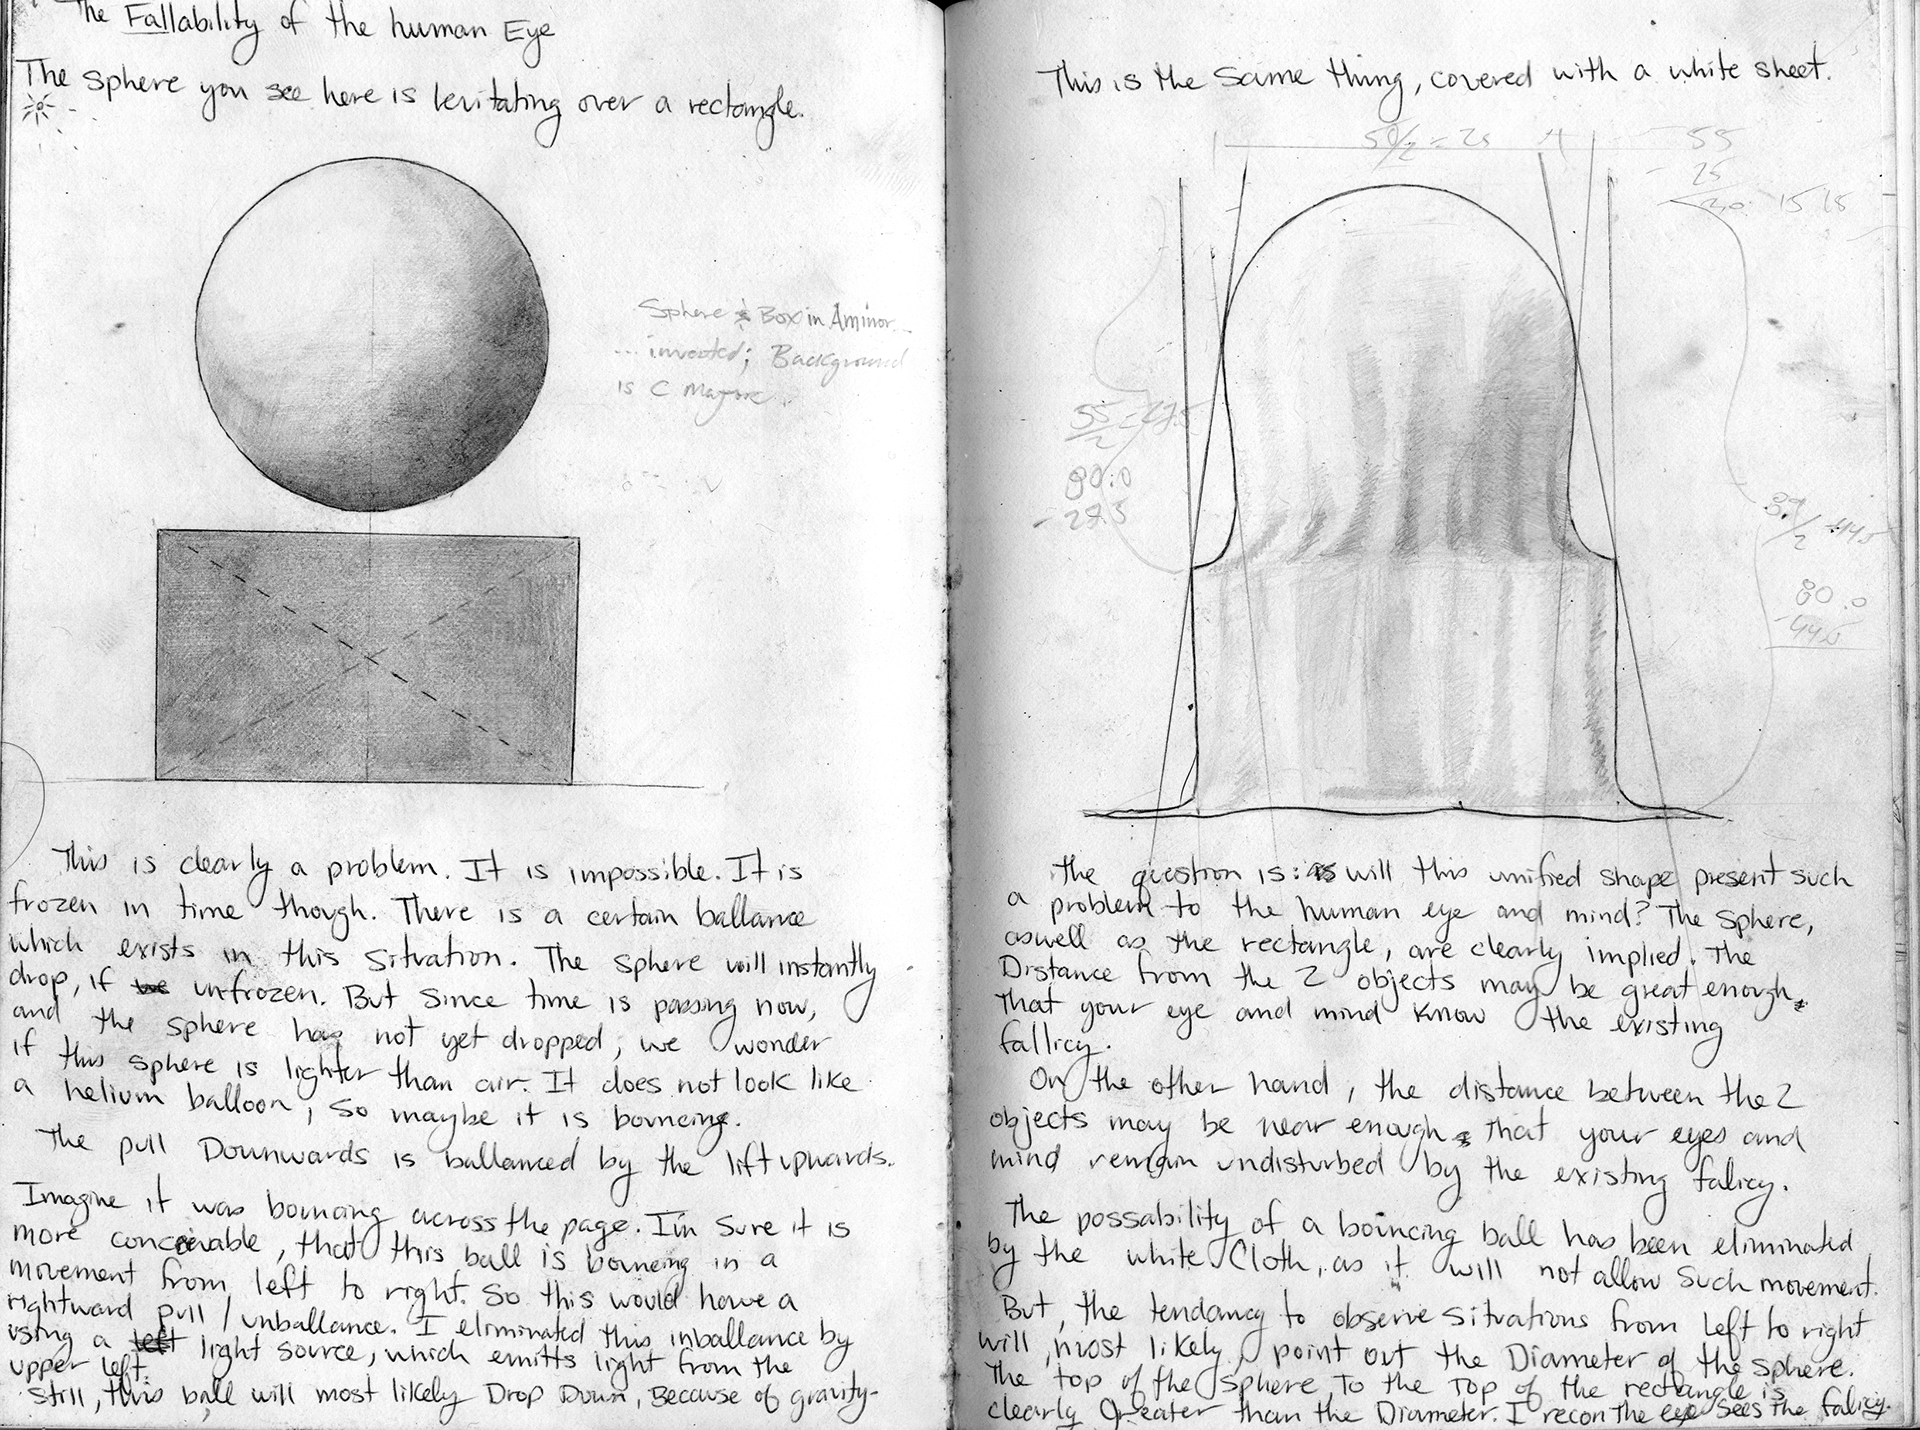 The Fallability of the human Eye
The sphere you see here is levitating over a rectangle.
Sphere & Box in Aminor
... inverted; Background
is C Majore.
This is clearly a problem. It is impossible. It is
frozen in time though. There is a certain ballance
which exists in this situation. The sphere will instantly
drop, if unfrozen. But since time is passing now,
and the sphere has not yet dropped, we wonder
if this sphere is lighter than air. It does not look like
a helium balloon, so maybe it is bouncing.
The pull Downwards is ballanced by the lift upwards.
Imagine it was bouncing across the page. I'm sure it is
more conceivable, that this ball is bouncing in a
movement from left to right. So this would have a
rightward pull / unballance. I eliminated this inballance by
using a left light source, which emitts light from the
upper left.
Still, this ball will most likely Drop Down, Because of gravity-
This is the same thing, covered with a white sheet.
50/2 = 25
55
- 25
15 15
55/2 = 27.5
80.0
- 27.5
89/2 44.5
80.0
44.5
The question is: will this unified shape present such
a problem to the human eye and mind? The sphere,
aswell as the rectangle, are clearly implied. The
Distance from the 2 objects may be great enough,
that your eye and mind know the existing
fallicy.
On the other hand, the distance between the 2
objects may be near enough that your eyes and
mind remain undisturbed by the existing falicy.
The possability of a bouncing ball has been eliminated
by the white Cloth, as it will not allow such movement.
But, the tendancy to observe situations from left to right
will, most likely, point out the Diameter of the sphere.
The top of the sphere, To the Top of the rectangle is
clearly Greater than the Diameter. I recon the eye sees the falicy.